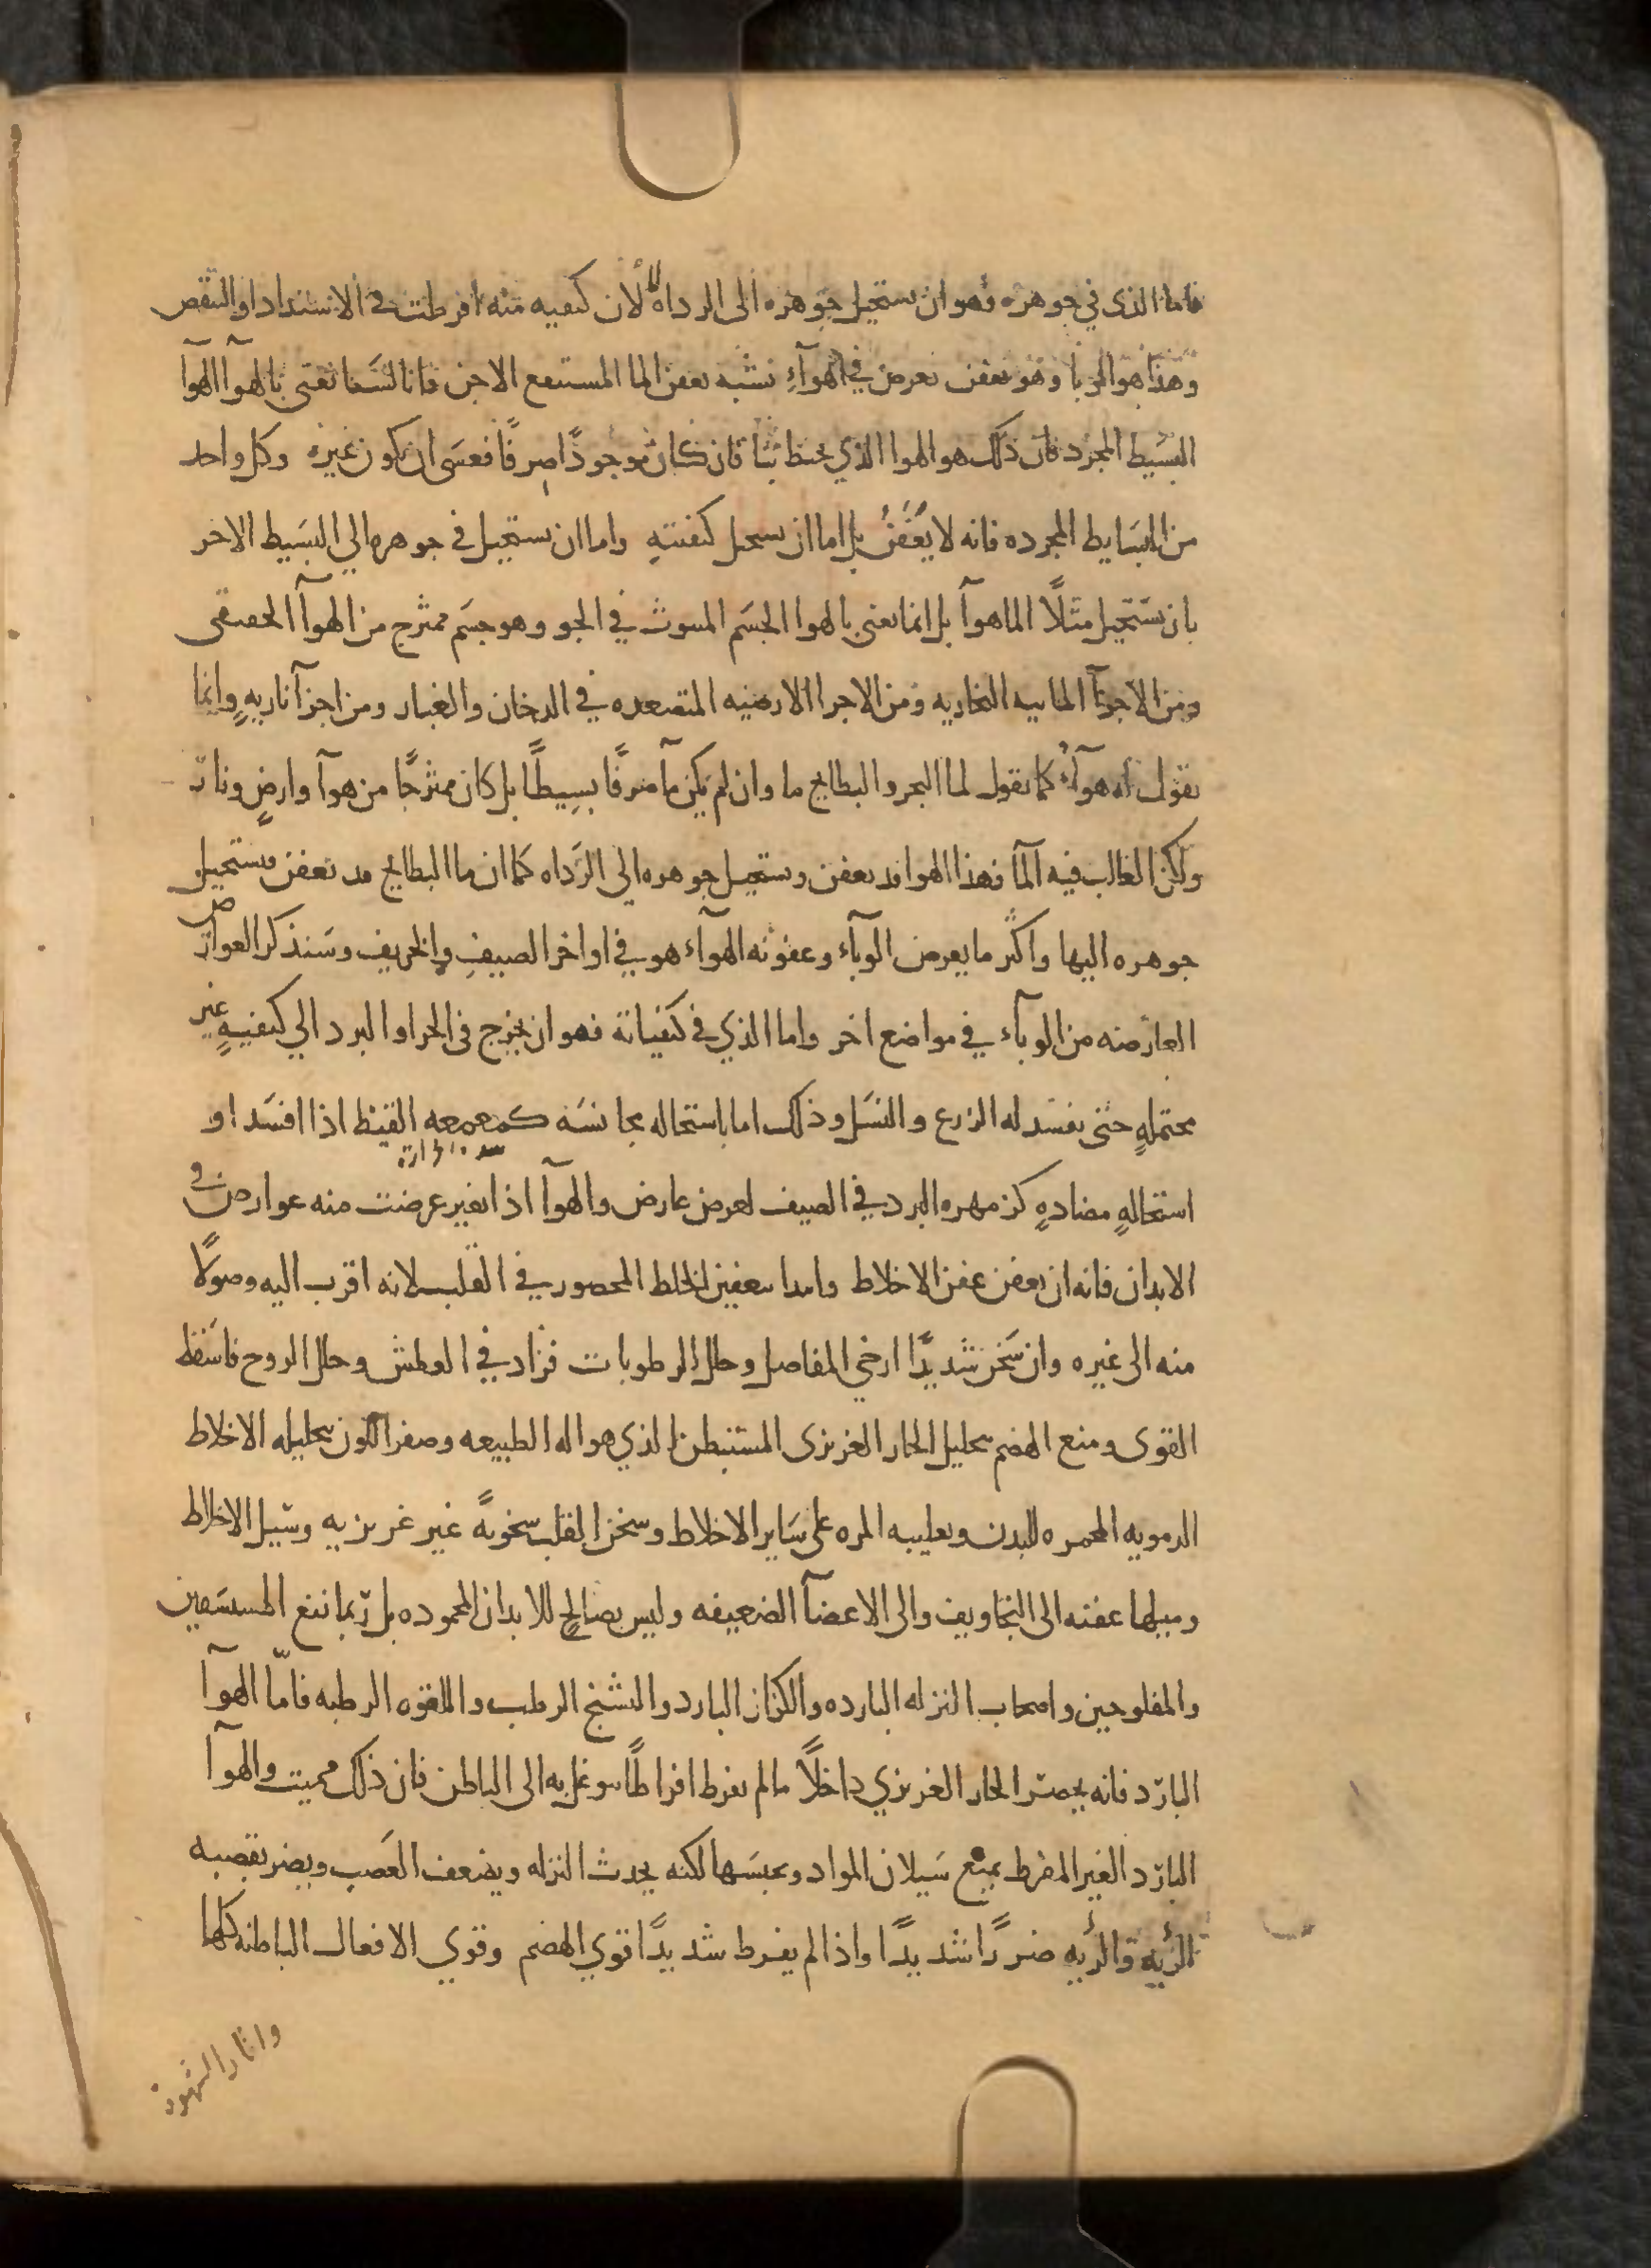 فاما الذى في جوهره فهو ان يستحيل جوهره الى الرداه لا لان كيفيه منه افرطت في الاشتداد او النقص
وهذا هو الوبا وهو تعفن يعرض في الهوآء يشبه تعفن الما المستنقع الاجن فانا لسَنا نعنى بالهوآ الهوآ
البسَيط المجرد فان ذلك هو الهوا الذي يحيط بنا فان كان موجودًا صرفًا فعسَى ان يكون غيره وكل واحد
من البسَايط المجرده فانه لا يَعُفَنُ بل اما ان يستحيل كيفيتهِ واما ان يستحيل في جوهره الي البسَيط الاخر
بان يسَتحيل مثلًا الما هوآ بل انما نعنى بالهوا الجسَم المبثوث في الجو وهو جسَم ممتزج من الهوآ الحقيقى
ومن الاجزآ الماييه البخاريه ومن الاجزا الارضيه المتصعده في الدخان والغبار ومن اجزآ ناريهٍ وانما
نقول له هوآءٌ كما نقول لما البحر والبطايح ما وان لم يكن مآ صرفًا بسِيطًا بل كان ممتزجًا من هوآ وارضٍ ونار
ولكن الغالب فيه المآ فهذا الهوا قد يعفن ويستحيل جوهره الي الرَداه كما ان ما البطايح قد يعفن فيستحيل
جوهره اليها واكثر ما يعرض الوبآء وعفونه الهوآء هو في اواخر الصيفِ والخريف وسَنذكر العوارض
العارضه من الوبآء في مواضع اخر واما الذي في كيفياته فهو ان يخرج في الحر او البرد الي كيفيهٍ غير
محتملهٍ حتى يفسَد له الزرع والنسَل وذلك اما باستحاله مجانسَه كمعمعه القيظ اذا افسَد او
استحالهٍ مضادهٍ كزمهره البرد في الصيف لعرض عارض والهوآ اذا تغير عرضت منه عوارض في
الابدان فانه ان تعفن عفن الاخلاط وابتدا بتعفين الخلط المحصور في القلب لانه اقرب اليه وصولًا
منه الى غيره وان سَخن شديدًا ارخي المفاصل وحلل الرطوبات فزاد في العطش وحلل الروح فاسَقط
القوى ومنع الهضم بتحليل الحار الغريزى المستبطن الذي هو اله الطبيعه وصفر اللون بتحليله الاخلاط
الدمويه المحمره للبدن وتغليبه المره على سَاير الاخلاط وسخن القلب سخونهً غير غريزيه وسَيل الاخلاط
وميلها عفنه الى التجاويف والى الاعضآ الضعيفه وليس بصالحٍ للابدان المحموده بل ربما نفع المستسَقين
والمفلوجين واصحاب النزله البارده والكزاز البارد والتشنج الرطب واللقوه الرطبه فامّا الهوآ
البارد فانه يحصر الحار الغريزي داخلًا ما لم يفرط افراطًا يتوغل به الى الباطن فان ذلك مميت والهوآ
البارد الغير المفرط يمنع سَيلان المواد ويحبسَها لكنه يحدث النزله ويضعف العَصب ويضر بقصبه
الريه والريه ضررًا شديدًا واذا لم يفرط شديدًا قوي الهضم وقوي الافعال الباطنه كلها
واثار الشهوة